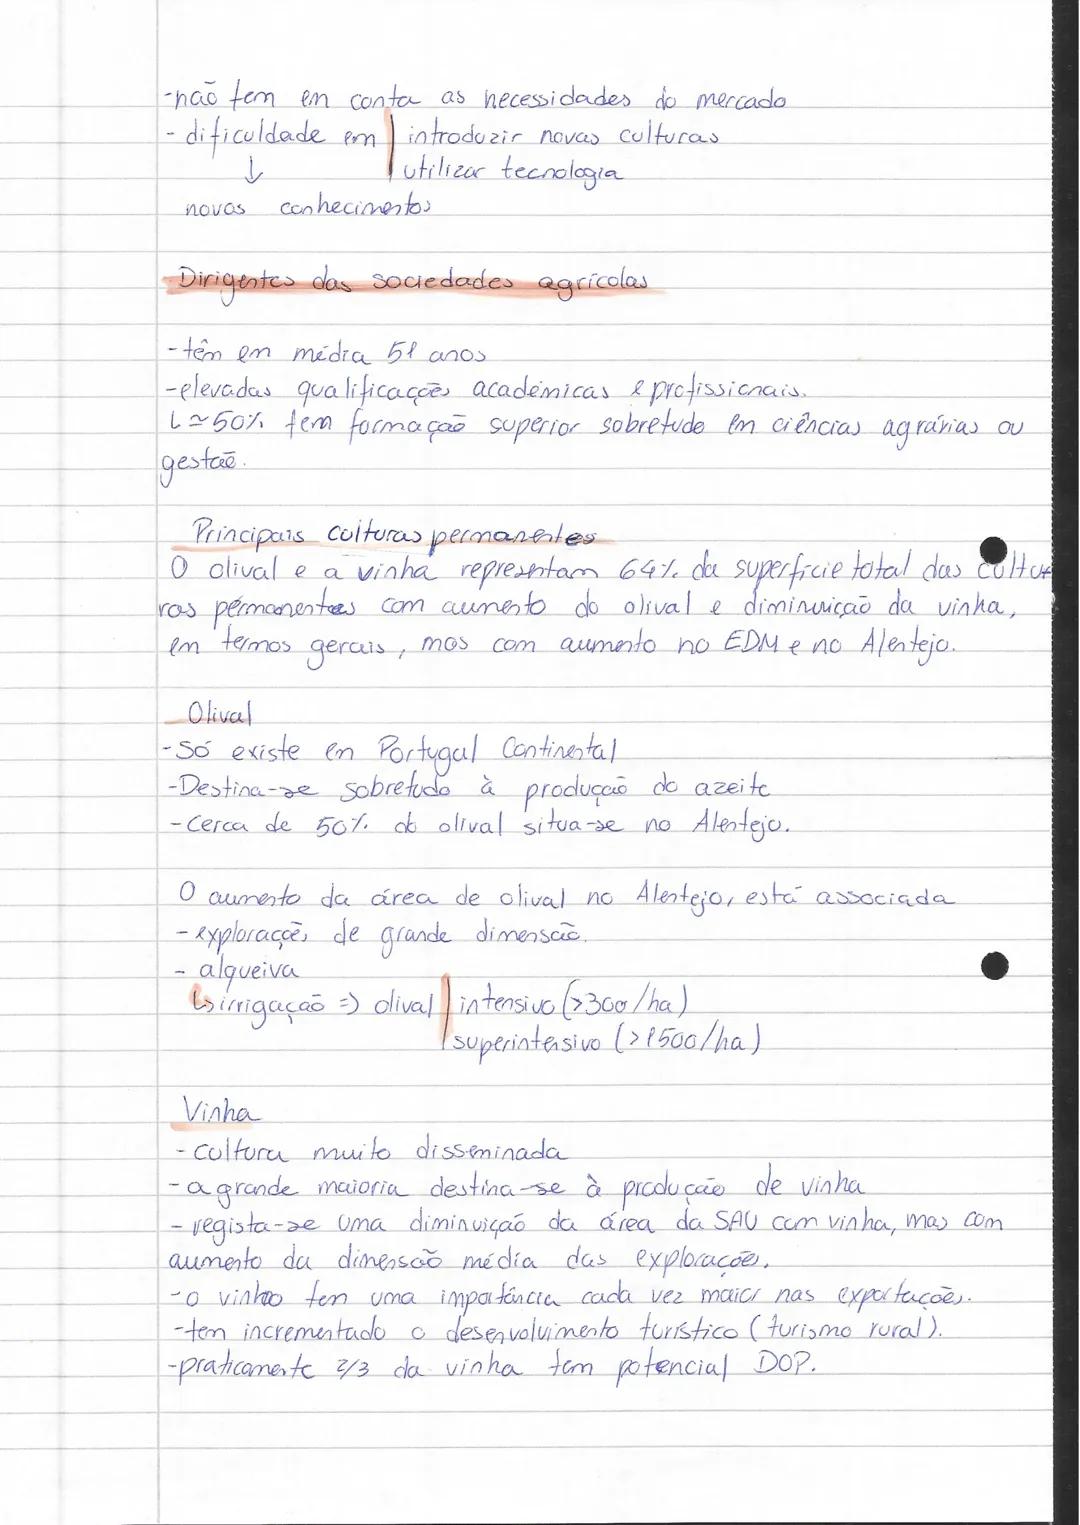 -não tem em conta as necessidades do mercado
- dificuldade em | introduzir novas culturas
↓ | utilizar tecnologia
novos conhecimentos
Dirigentes das sociedades agrícolas
-têm em média 51 anos
-elevadas qualificações académicas e profissionais.
↳≃50% tem formação superior sobretudo em ciências agrárias ou
gestão.
Principais culturas permanentes
O olival e a vinha representam 64% da superfície total das cultu
ras permanentes com aumento do olival e diminuição da vinha,
em termos gerais, mas com aumento no EDM e no Alentejo.
Olival
-Só existe em Portugal Continental
-Destina-se sobretudo à produção do azeite
-Cerca de 50% do olival situa-se no Alentejo.
O aumento da área de olival no Alentejo, está associada
-explorações de grande dimensão.
- alqueiva
↳irrigação => olival | intensivo (>300/ha)
| superintensivo (>1500/ha)
Vinha
-cultura muito disseminada
-a grande maioria destina-se à produção de vinha
-regista-se uma diminuição da área da SAU com vinha, mas com
aumento da dimensão média das explorações.
-o vinho tem uma importância cada vez maior nas exportações.
-tem incrementado o desenvolvimento turístico (turismo rural).
-praticamente 2/3 da vinha tem potencial DOP.